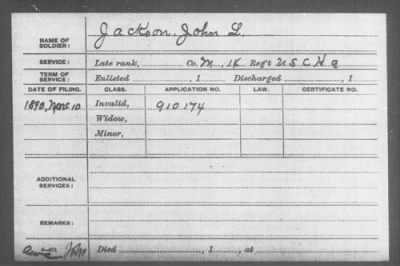 NAME OF SOLDIER: Jackson, John L.
SERVICE: Late rank, Co. M, 1K Reg't U S C H A
TERM OF SERVICE: Enlisted , 1 Discharged , 1
DATE OF FILING. CLASS. APPLICATION NO. LAW. CERTIFICATE NO.
1890, 10 Invalid, 910.174
Widow,
Minor,
ADDITIONAL SERVICES:
REMARKS:
Died , 1 , at